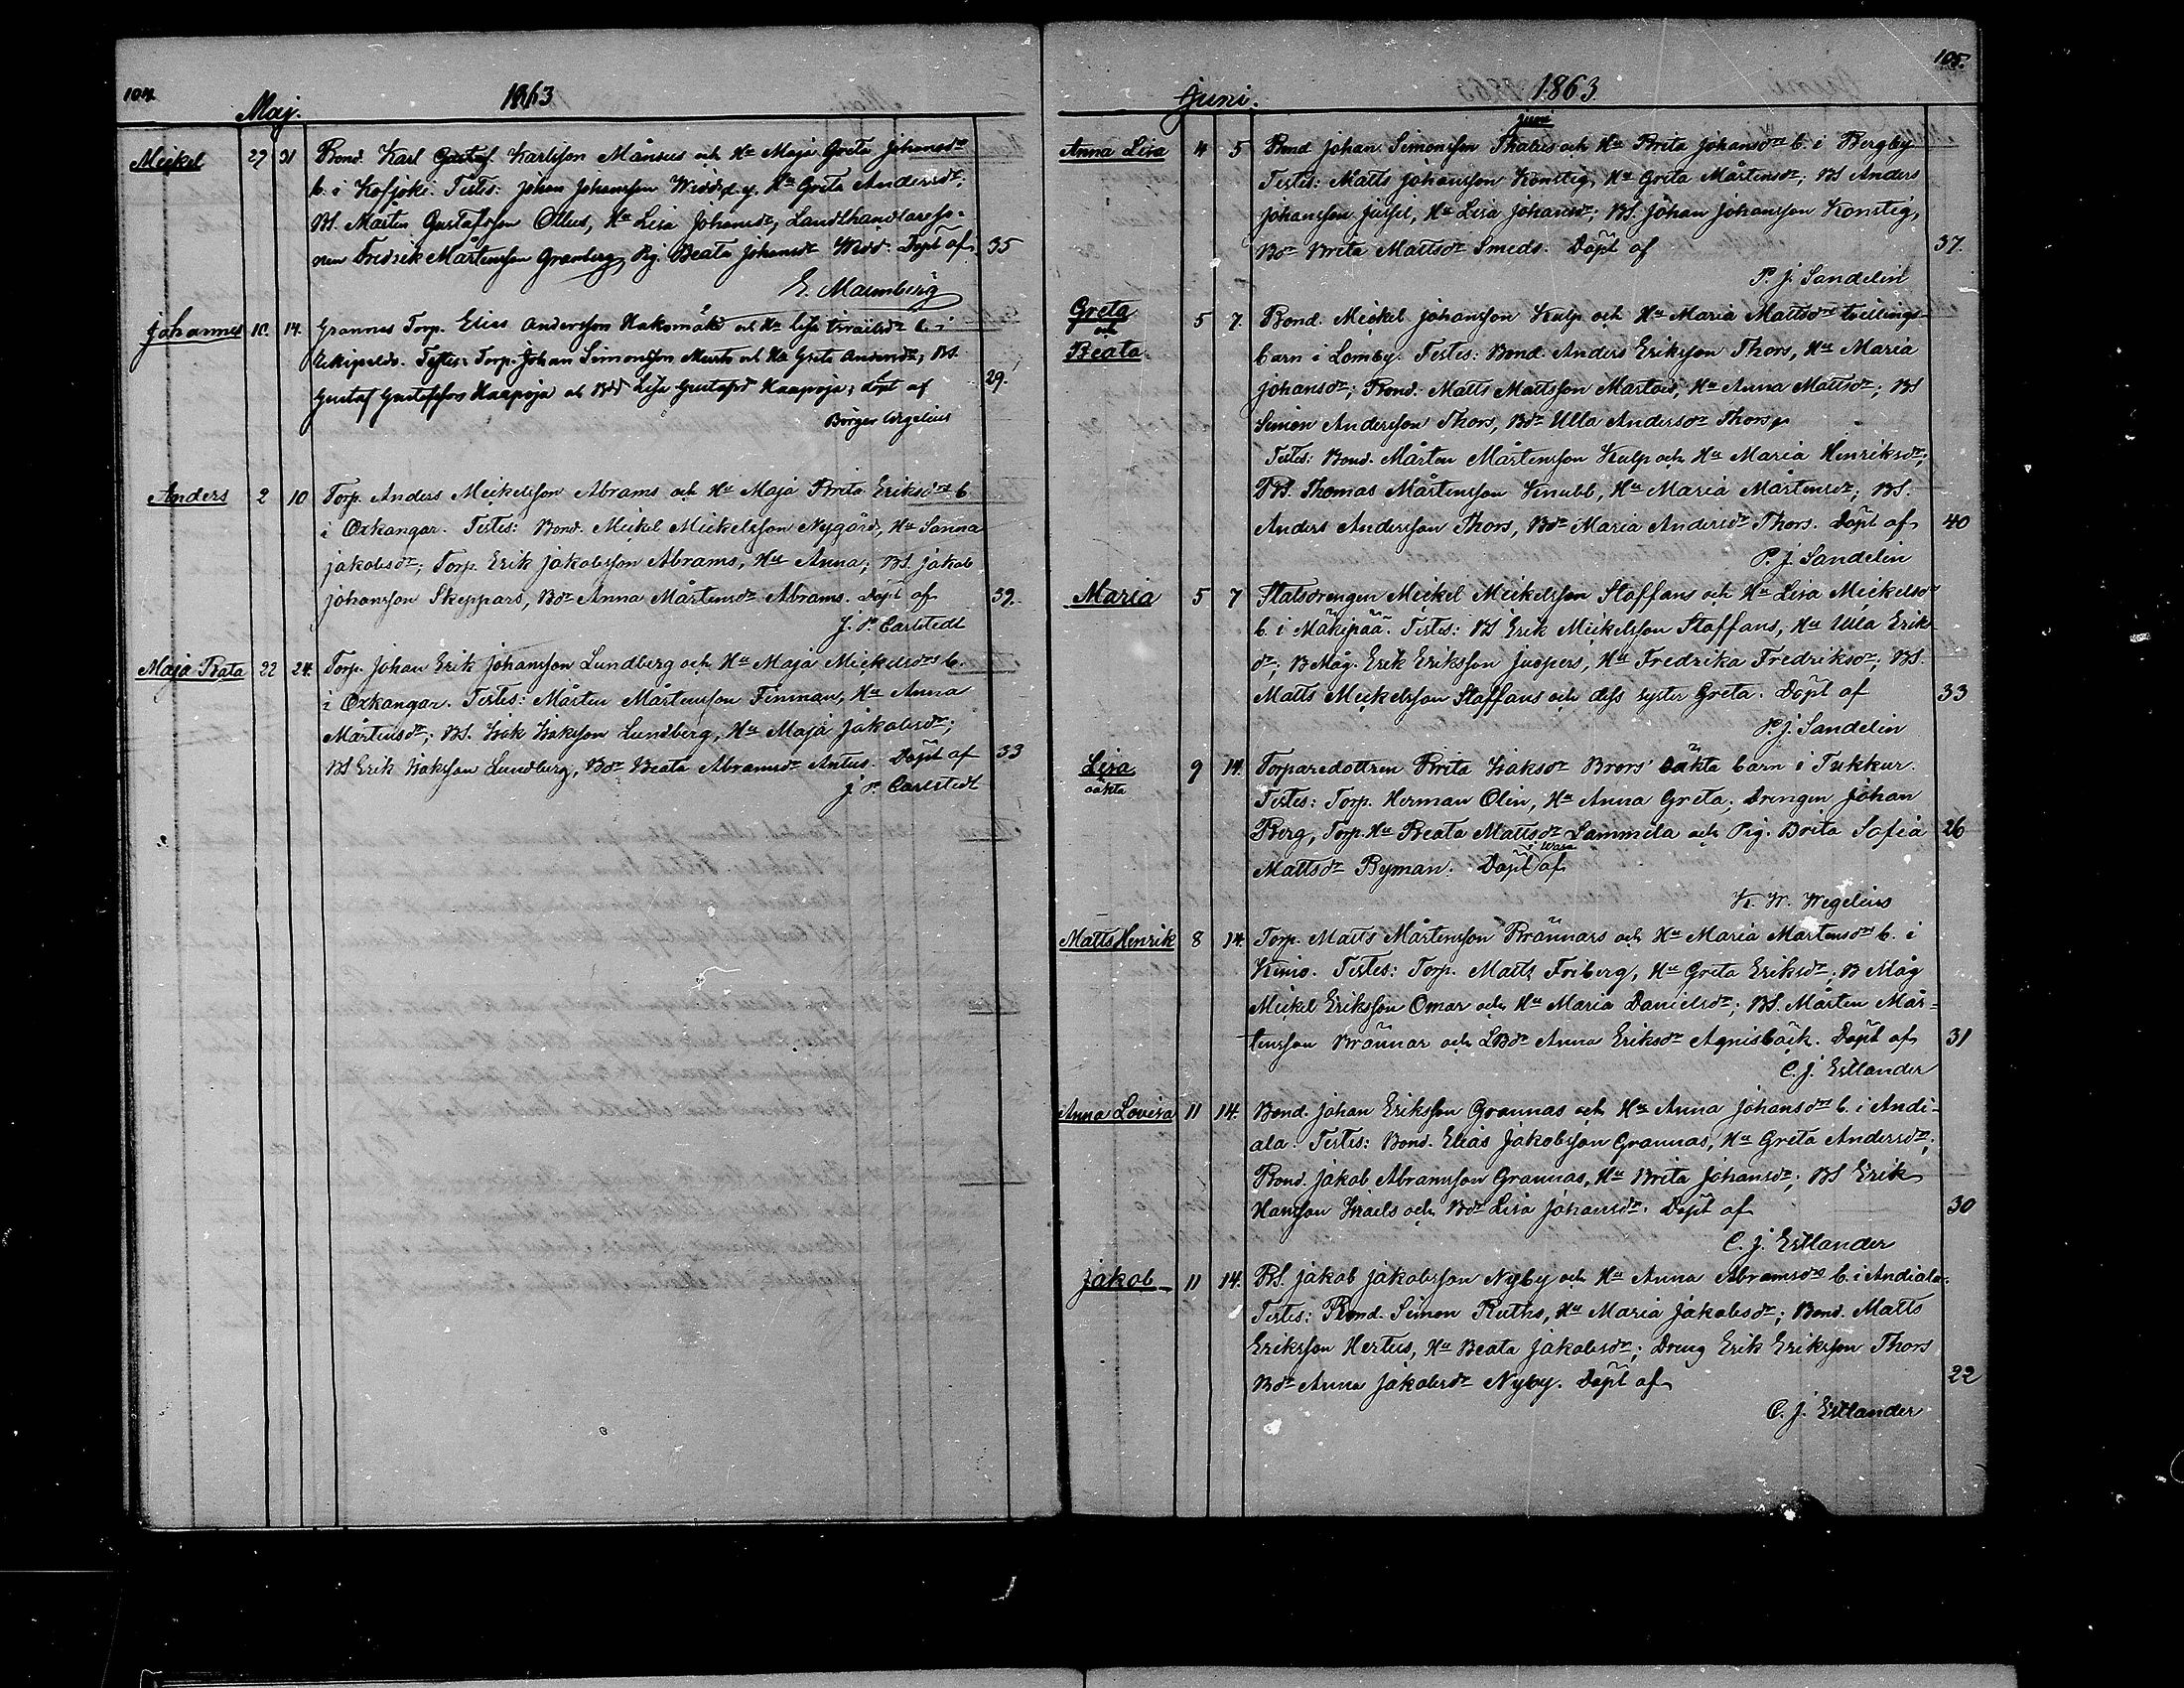 104.
Maj. 1863
Meickel 29 31 Bond. Karl Gustaf Karlsson Månsus och Hu Maja Greta Johansdr
b. i Kofjoki. Testes: Johan Johansson Widd, d.y. Hu Greta Andersdr;
BS. Martin Gustafsson Ollus, Hu Lisa Johansdr, Landthandlareso-
nen Fredrik Mårtensson Granberg, Pig. Beata Johansdr Widd. Döpt af 35
E. Malmberg
Johannes 10. 14. Grannas Torp. Elias Andersson Hakomäki och Hu Lisa Israelsdr b. i
Torp. Johan Simonsson och Hu Greta BS.
Gustaf Gustafsson Haapoja och Bdr Lisa Gustafsdr Haapoja; döpt af 29.
Börger Wegelius
Anders 2 10 Torp. Anders Meickelsson Abrams och Hu Maja Brita Eriksdr b
i Oxkangar. Testes: Bond. Meikel Mickelsson Nygård, Hu Sanna
Jakobsdr; Torp. Erik Jakobsson Abrams, Hu Anna; BS. Jakob
Johansson Skeppars, Bdr Anna Mårtensdr Abrams. Döpt af 39.
J. P. Carlstedt
Maja Beata 22 24. Torp. Johan Erik Johansson Lundberg och Hu Maja Mickelsdr b.
i Oxkangar. Testes: Mårten Mårtensson Finnman, Hu Anna
Mårtensdr; BS. Isak Isaksson Lundberg, Hu Maja Jakobsdr;
BS Erik Isaksson Lundberg, Bdr Beata Abramsdr Antus. Döpt af 33
J. P. Carlstedt
105.
Juni. 1863
Juni
Anna Lisa 4 5 Bond Johan Simonsson Thabus och Hu Brita Johansdr b. i Bergby
Testes: Matts Johansson Konstig, Hu Greta Mårtensdr; BS Anders
Johansson Jussil, Hu Lisa Johansdr; BS. Johan Johansson Konstig,
Bdr Brita Mattsdr Smeds. Döpt af 37.
P. J. Sandelin
Greta
och
Beata. 5 7. Bond. Mickel Johansson Kulp och Hu Maria Mattsdr tvillings-
barn i Lomby. Testes: Bond. Anders Eriksson Thors, Hu Maria
Johansdr; Bond. Matts Mattsson Martois, Hu Anna Mattsdr; BS
Simon Andersson Thors, Bdr Ulla Andersdr Thors
Testes: Bond. Mårten Mårtensson Kulp och Hu Maria Henriksdr;
BS. Thomas Mårtensson Knubb, Hu Maria Mårtensdr; BS.
Anders Andersson Thors, Bdr Maria Andersdr Thors. Döpt af 40
P. J. Sandelin
Maria 5 7 Statsdrengen Mickel Mickelsson Staffans och Hu Lisa Mickelsdr
b. i Mäkipää. Testes: BS Erik Mickelsson Staffans, Hu Ulla Eriks
dr; B Måg. Erik Eriksson Juopers, Hu Fredrika Fredriksdr; BS.
Matts Mickelsson Staffans och dess syster Greta. Döpt af 33
P. J. Sandelin
Lisa
oäkta 9 14. Torparedottren Brita Isaksdr Brors' oäkta barn i Tukkur.
Testes: Torp. Herman Olin, Hu Anna Greta; Drengen Johan
Berg, Torp. Hu Beata Mattsdr Lammila och Pig. Brita Sofia 26
Mattsdr Byman. Döpt i Wasa af
K. W. Wegelius
Matts Henrik 8 14. Torp. Matts Mårtensson Brännars och Hu Maria Mårtensdr b. i
Kimo. Testes: Torp. Matts Friberg, Hu Greta Eriksdr; B Måg
Mickel Eriksson Omar och Hu Maria Danielsdr; BS. Mårten Mår-
tensson Brännar och LBdr Anna Eriksdr Agnisbäck. Döpt af 31
C. J. Estlander
Anna Lovisa 11 14. Bond. Johan Eriksson Grannas och Hu Anna Johansdr b. i Andi-
ala. Testes: Bond. Elias Jakobsson Grannas, Hu Greta Andersdr;
Bond. Jakob Abramsson Grannas, Hu Brita Johansdr; BS Erik
Hansson Israels och Bdr Lisa Johansdr. Döpt af 30
C. J. Estlander
Jakob 11 14. BS. Jakob Jakobsson Nyby och Hu Anna Abramsdr b. i Andiala.
Testes: Bond. Simon Ruths, Hu Maria Jakobsdr; Bond. Matts
Eriksson Hertus, Hu Beata Jakobsdr; Dreng Erik Eriksson Thors
Bdr Anna Jakobsdr Nyby. Döpt af 22
C. J. Estlander